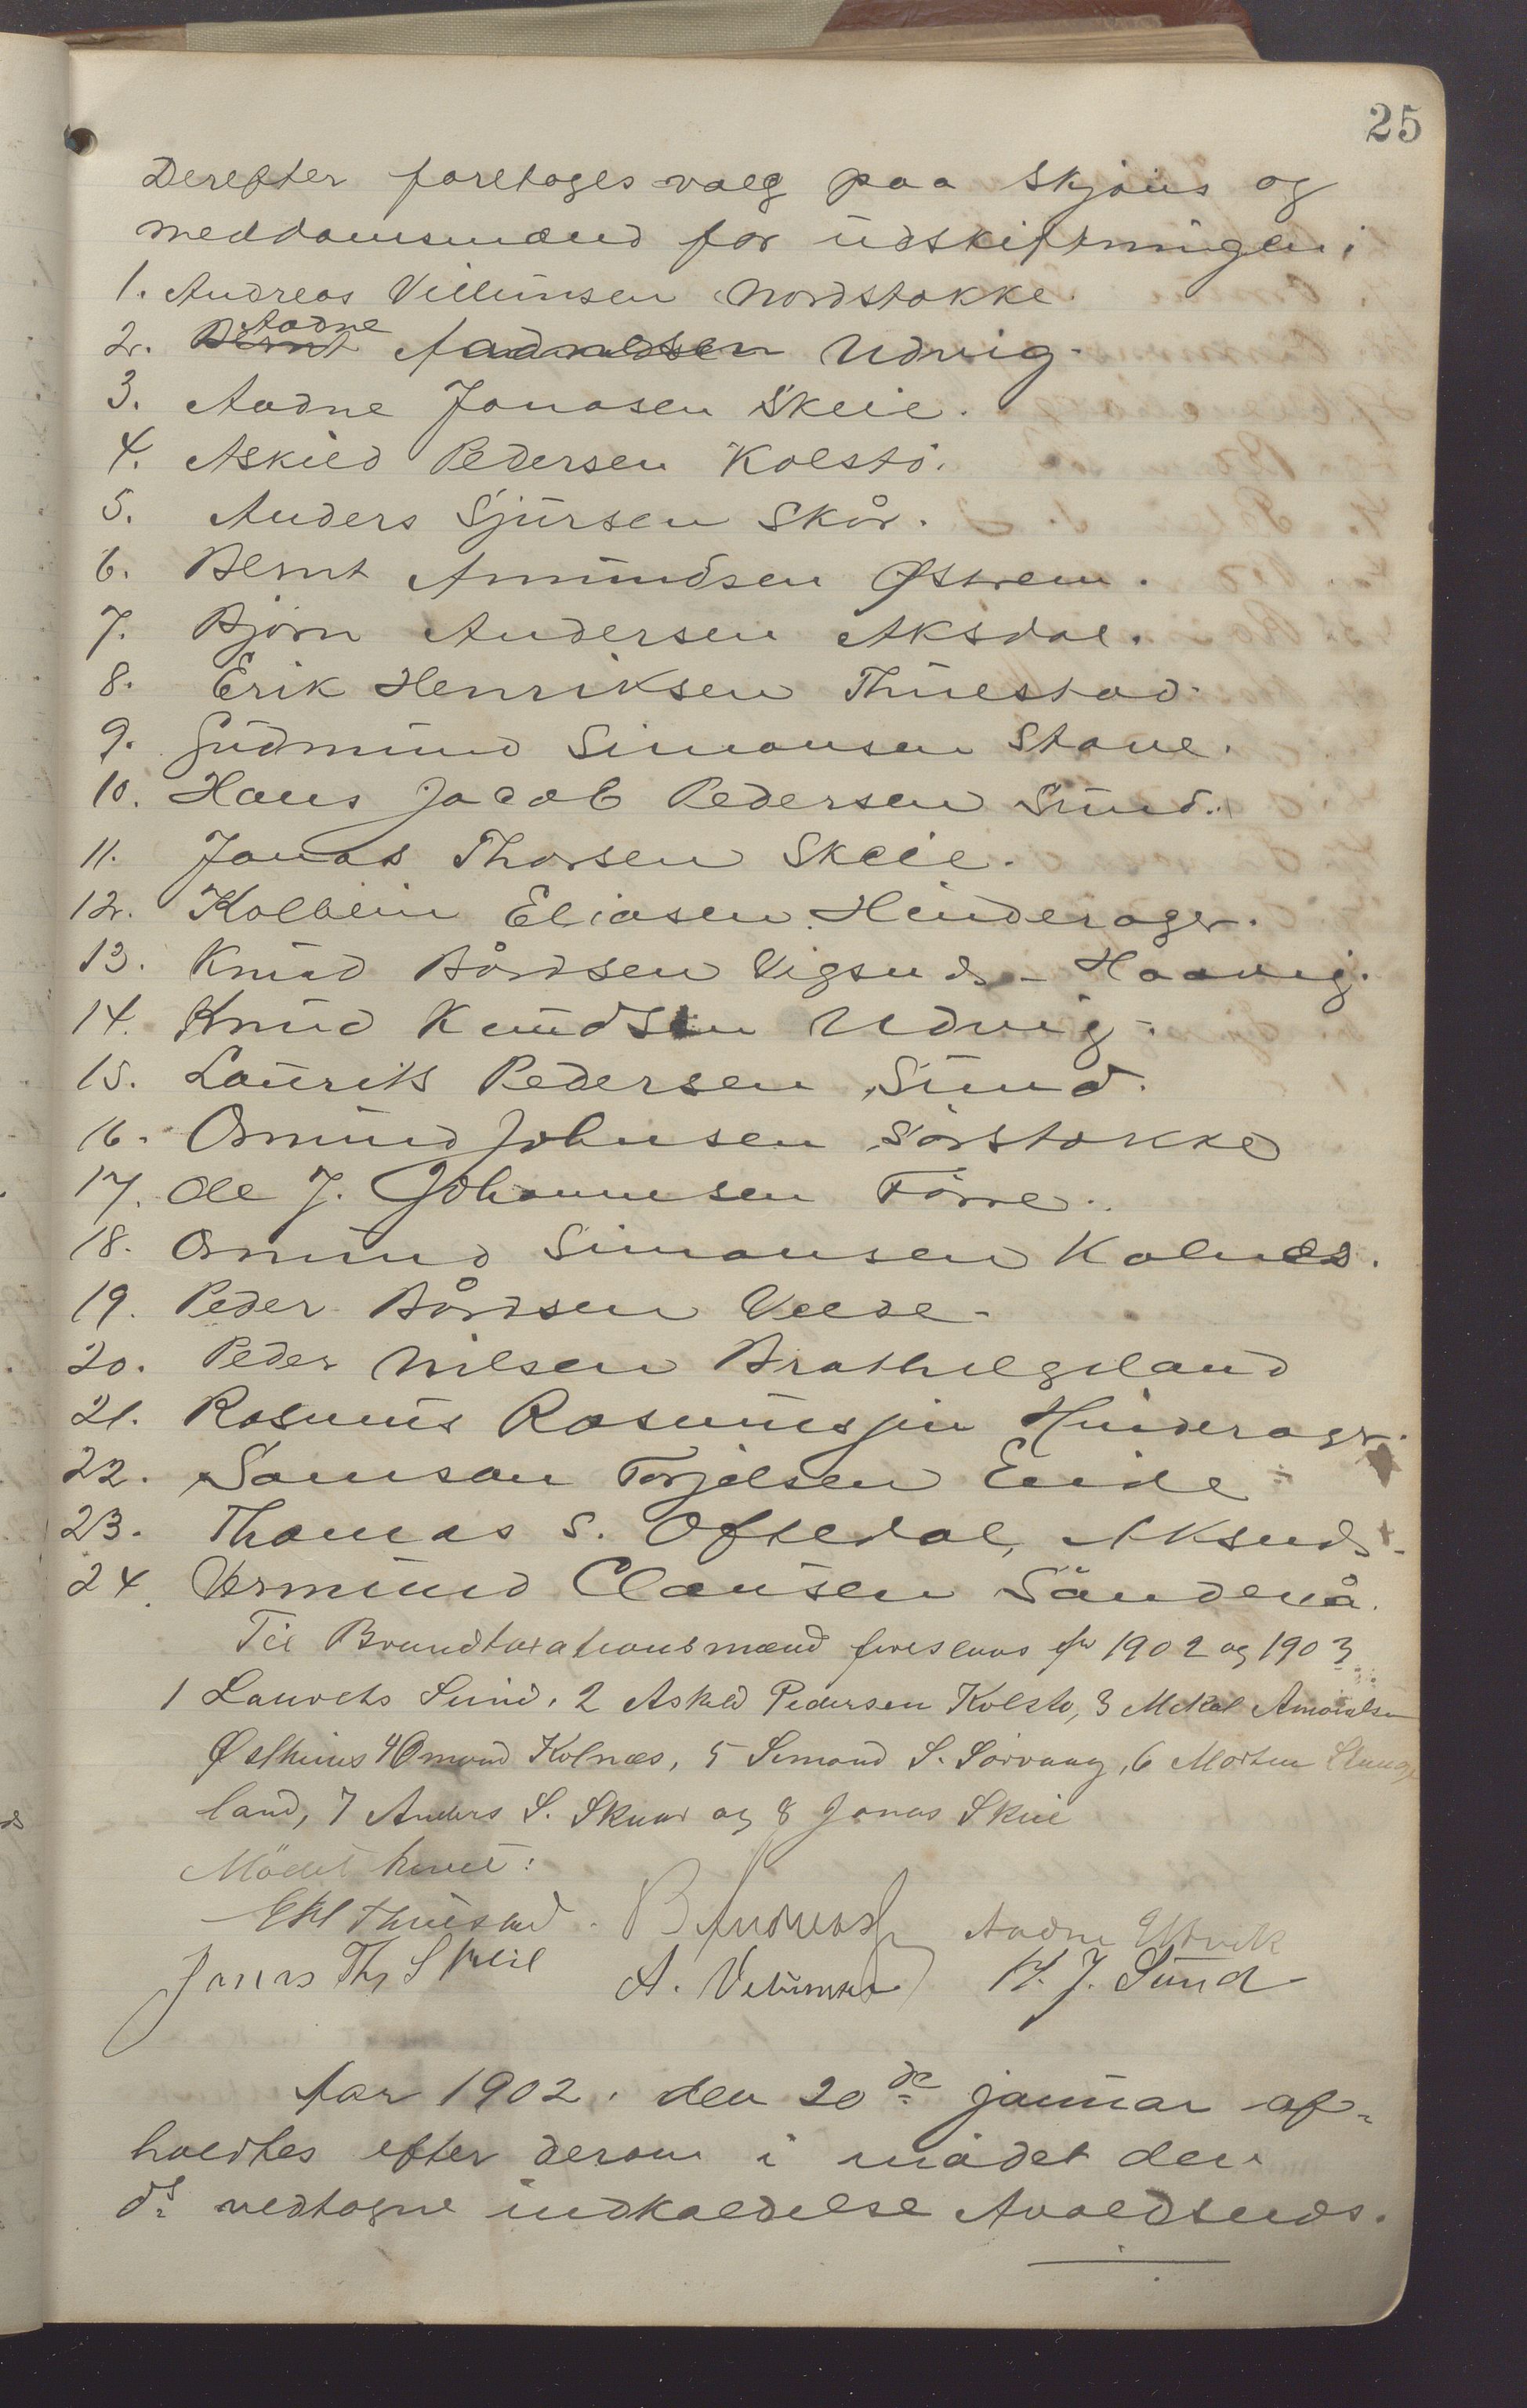 25
Derefter foretoges valg paa skjøns og
meddomsmænd for udskiftningen i
1. Andreas Villumsen Nordstokke.
2. Bernt Aadne Aadnesen Udvig.
3. Aadne Jonasen Skeie.
4. Askild Pedersen Kolstö.
5. Anders Sjursen Skår.
6. Bernt Amundsen Østrem.
7. Björn Andersen Aksdal.
8. Erik Henriksen Thuestad.
9. Gudmund Simonsen Stave.
10. Hans Jacob Pedersen Sund.
11. Jonas Thorsen Skeie.
12. Kolbein Eliasen Hinderager.
13. Knud Bårdsen Vigsnds - Haavig.
14. Knud Knudsen Udvig.
15. Laurits Pedersen Sund.
16. Osmund Johnsen Sörstokke
17. Ole J. Johannesen Förre.
18. Osmund Simonsen Kolnes.
19. Peder Bårdsen Velde.
20. Peder Nilsen Brathelgeland
21. Rasmus Rasmussen Hinderager.
22. Samson Torjelsen Eide
23. Thomas S. Oftedal, Aksnds.
24. Vermund Clausen Sändenå.
Til Brandtaxationsmænd foreslaaes for 1902 og 1903
1 Laurits Sund, 2 Askild Pedersen Kolstø, 3 Mikal Amundsen
Østhuus 4 Omund Kolnæs, 5 Simond S. Sørvaag, 6 Morten Stange
land, 7 Anders S. Skaar og 8 Jonas Skeie
Mödet hævet:
E H Thuestad. B Andreas Aadne Utvik
Jonas Th. Skeie A. Velumsen H. J. Sund
Aar 1902. den 20de januar af-
holdtes efter derom i mödet den
ds vedtagne indkaldelse Avaldsnds.